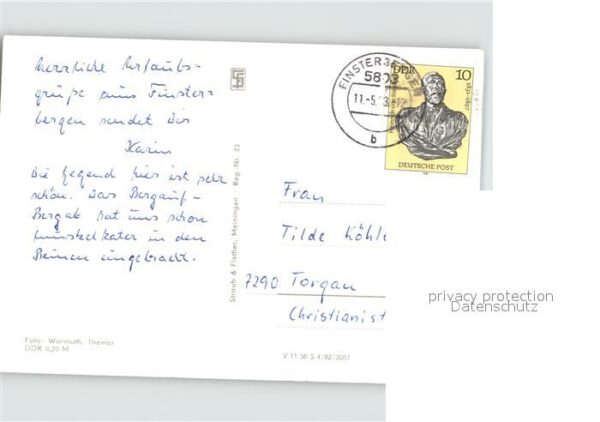 Herrliche Urlaubs-
grüße aus Finster-
bergen sendet Dir
Karin
Die Gegend hier ist sehr
schön. Das Bergauf-
Bergab hat uns schon
Muskelkater in den
Beinen eingebracht.
Foto: Warmuth, Themar
DDR 0,25 M
Straub & Fischer, Meiningen Reg.-Nr. 23
V 11 50 S 4/82/3003
FINSTERBERGEN
5803
11.-5.
b
DDR
10
1831-1897
DEUTSCHE POST
Frau
Tilde Köhle
7290 Torgau
Christianist
privacy protection
Datenschutz